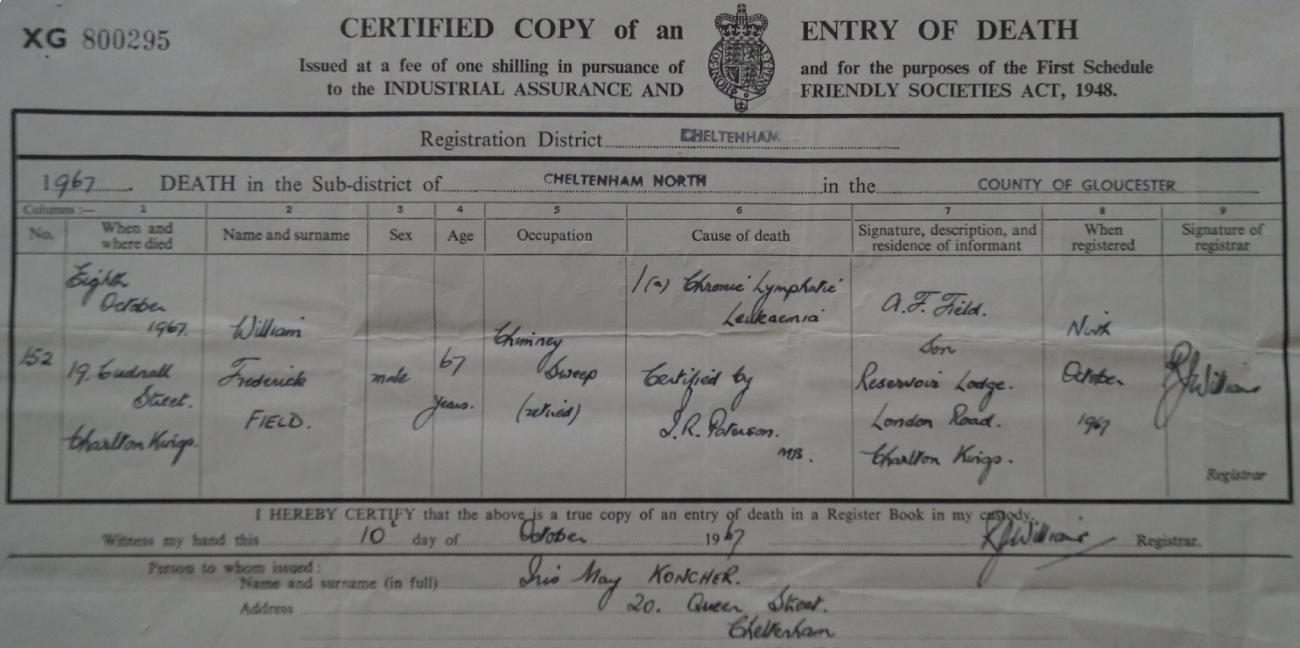 XG 800295
CERTIFIED COPY of an ENTRY OF DEATH
Issued at a fee of one shilling in pursuance of and for the purposes of the First Schedule
to the INDUSTRIAL ASSURANCE AND FRIENDLY SOCIETIES ACT, 1948.
Registration District CHELTENHAM
1967. DEATH in the Sub-district of CHELTENHAM NORTH in the COUNTY OF GLOUCESTER
Columns :— 1 2 3 4 5 6 7 8 9
No.
When and
where died
Name and surname
Sex
Age
Occupation
Cause of death
Signature, description, and
residence of informant
When
registered
Signature of
registrar
152
Eighth
October
1967.
19. Cudnall
Street.
Charlton Kings.
William
Frederick
FIELD.
male
67
years.
Chimney
Sweep
(retired)
1(a) Chronic Lymphatic
Leukaemia
Certified by
J.R. Paterson.
MB.
A.F. Field.
Son
Reservoir Lodge.
London Road.
Charlton Kings.
Ninth
October
1967
RJWilliams
Registrar
I HEREBY CERTIFY that the above is a true copy of an entry of death in a Register Book in my custody.
Witness my hand this 10 day of October 1967 RJWilliams Registrar.
Person to whom issued :
Name and surname (in full) Iris May KONCHER.
Address 20. Queen Street.
Cheltenham